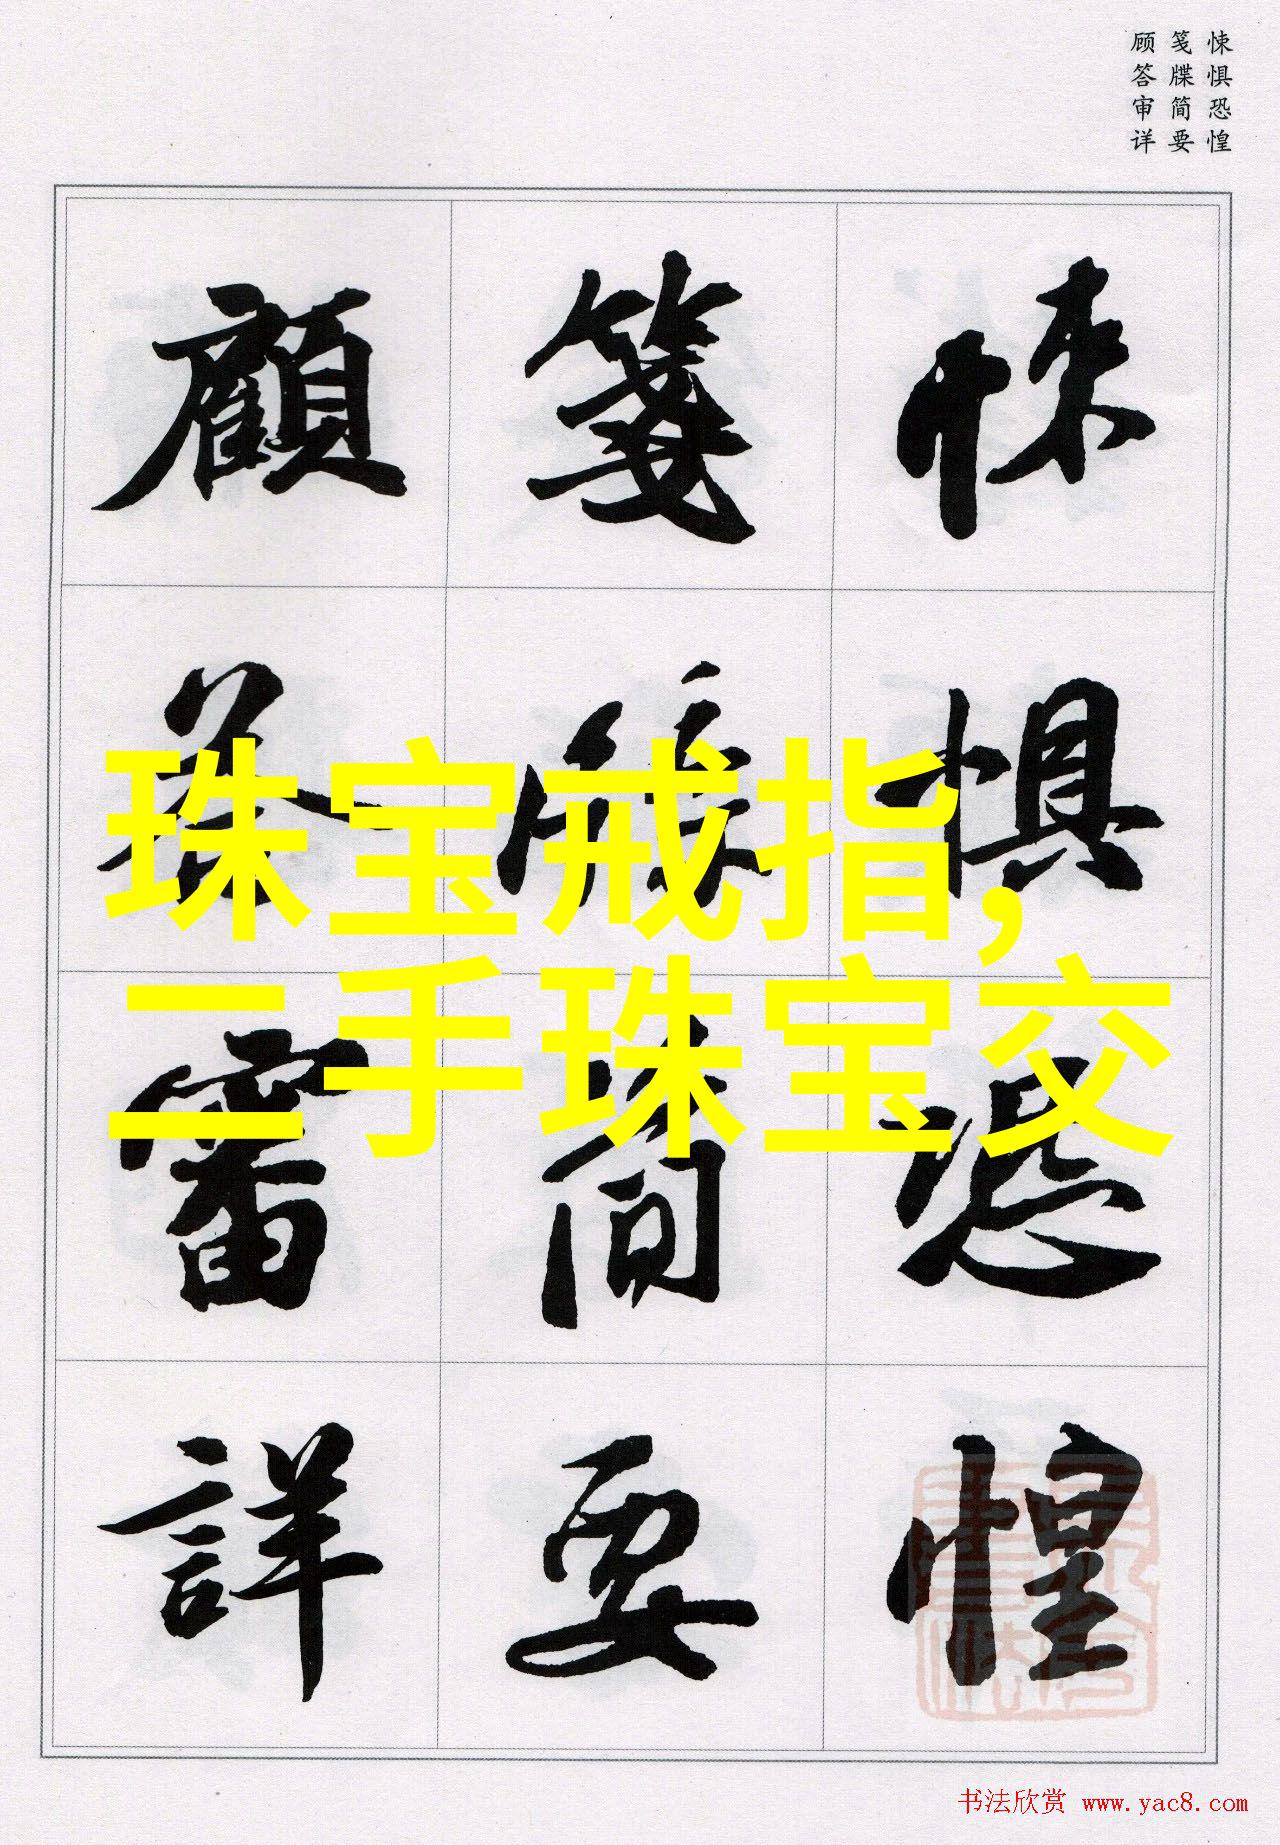 悚惧恐惶
笺牒简要
顾答审详
悚惧恐惶
箋牒简要
顧答審詳
珠宝戒指,
二手珠宝交
书法欣赏 www.yac8.com